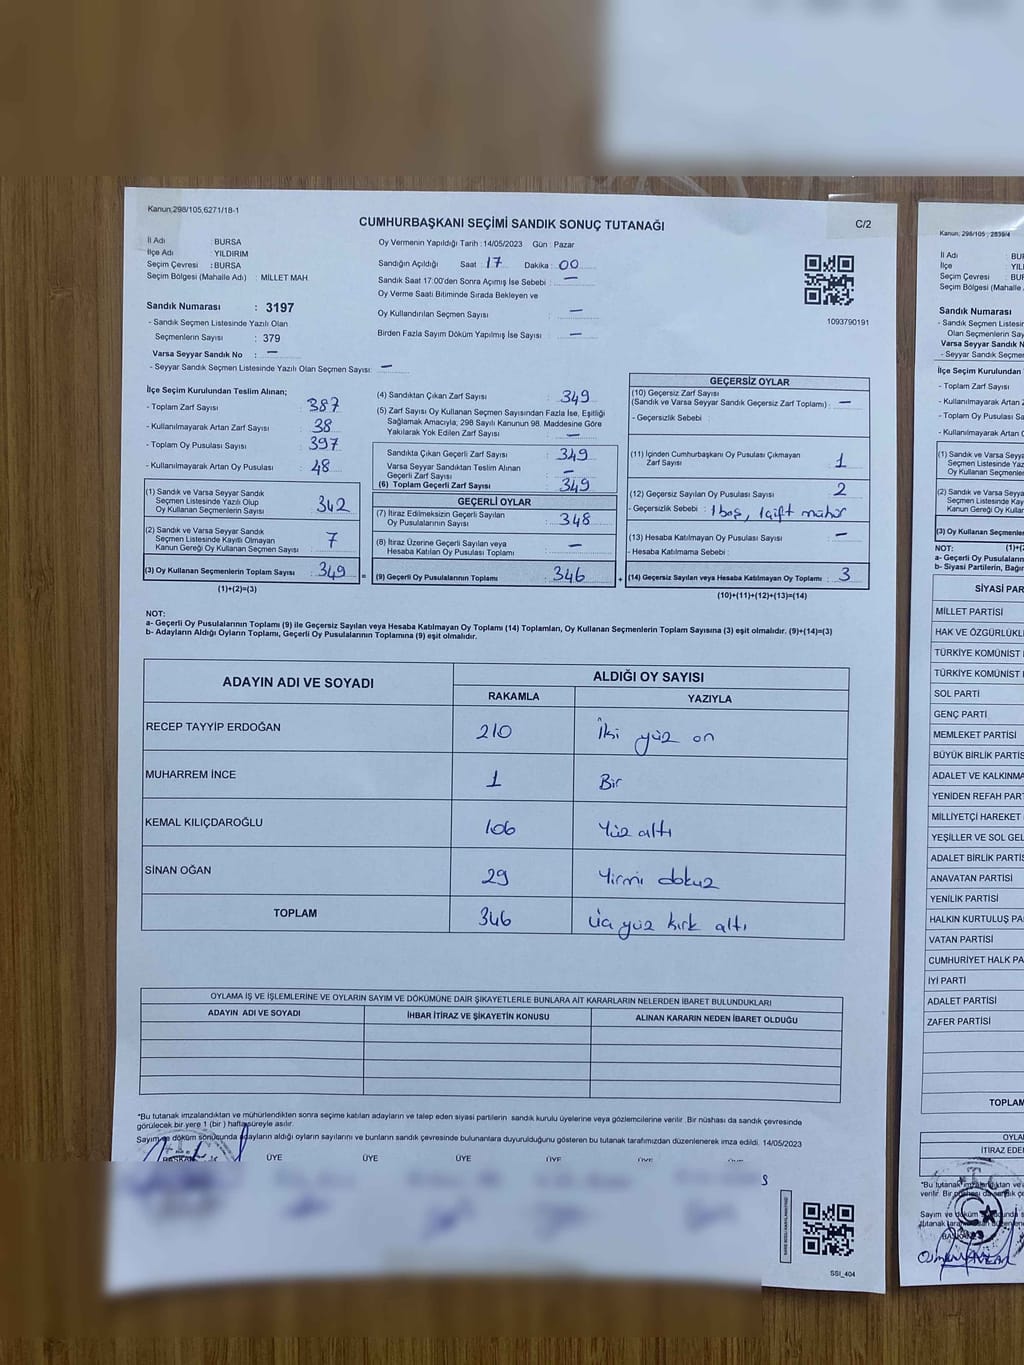 Kanun;298/105,6271/18-1
CUMHURBAŞKANI SEÇİMİ SANDIK SONUÇ TUTANAĞI
C/2
İl Adı BURSA
İlçe Adı YILDIRIM
Seçim Çevresi : BURSA
Seçim Bölgesi (Mahalle Adı) : MİLLET MAH
Sandık Numarası : 3197
- Sandık Seçmen Listesinde Yazılı Olan
Seçmenlerin Sayısı : 379
Varsa Seyyar Sandık No : —
- Seyyar Sandık Seçmen Listesinde Yazılı Olan Seçmen Sayısı: —
Oy Vermenin Yapıldığı Tarih : 14/05/2023 Gün : Pazar
Sandığın Açıldığı Saat 17 Dakika : 00
Sandık Saat 17:00'den Sonra Açımış İse Sebebi : —
Oy Verme Saati Bitiminde Sırada Bekleyen ve
Oy Kullandırılan Seçmen Sayısı : —
Birden Fazla Sayım Döküm Yapılmış İse Sayısı : —
1093790191
İlçe Seçim Kurulundan Teslim Alınan;
- Toplam Zarf Sayısı : 387
- Kullanılmayarak Artan Zarf Sayısı : 38
- Toplam Oy Pusulası Sayısı : 397
- Kullanılmayarak Artan Oy Pusulası : 48
(1) Sandık ve Varsa Seyyar Sandık
Seçmen Listesinde Yazılı Olup
Oy Kullanan Seçmenlerin Sayısı : 342
(2) Sandık ve Varsa Seyyar Sandık
Seçmen Listesinde Kayıtlı Olmayan
Kanun Gereği Oy Kullanan Seçmen Sayısı : 7
(3) Oy Kullanan Seçmenlerin Toplam Sayısı : 349
(1)+(2)=(3)
(4) Sandıktan Çıkan Zarf Sayısı : 349
(5) Zarf Sayısı Oy Kullanan Seçmen Sayısından Fazla İse, Eşitliği
Sağlamak Amacıyla; 298 Sayılı Kanunun 98. Maddesine Göre
Yakılarak Yok Edilen Zarf Sayısı : —
Sandıkta Çıkan Geçerli Zarf Sayısı : 349
Varsa Seyyar Sandıktan Teslim Alınan
Geçerli Zarf Sayısı : —
(6) Toplam Geçerli Zarf Sayısı : 349
GEÇERLİ OYLAR
(7) İtiraz Edilmeksizin Geçerli Sayılan
Oy Pusulalarının Sayısı : 348
(8) İtiraz Üzerine Geçerli Sayılan veya
Hesaba Katılan Oy Pusulası Toplamı : —
(9) Geçerli Oy Pusulalarının Toplamı : 346
GEÇERSİZ OYLAR
(10) Geçersiz Zarf Sayısı
(Sandık ve Varsa Seyyar Sandık Geçersiz Zarf Toplamı) : —
- Geçersizlik Sebebi :
(11) İçinden Cumhurbaşkanı Oy Pusulası Çıkmayan
Zarf Sayısı : 1
(12) Geçersiz Sayılan Oy Pusulası Sayısı : 2
- Geçersizlik Sebebi : 1 boş, 1 çift mühür
(13) Hesaba Katılmayan Oy Pusulası Sayısı : —
- Hesaba Katılmama Sebebi :
(14) Geçersiz Sayılan veya Hesaba Katılmayan Oy Toplamı : 3
(10)+(11)+(12)+(13)=(14)
NOT:
a- Geçerli Oy Pusulalarının Toplamı (9) ile Geçersiz Sayılan veya Hesaba Katılmayan Oy Toplamı (14) Toplamları, Oy Kullanan Seçmenlerin Toplam Sayısına (3) eşit olmalıdır. (9)+(14)=(3)
b- Adayların Aldığı Oyların Toplamı, Geçerli Oy Pusulalarının Toplamına (9) eşit olmalıdır.
ADAYIN ADI VE SOYADI ALDIĞI OY SAYISI
RAKAMLA YAZIYLA
RECEP TAYYİP ERDOĞAN 210 İki yüz on
MUHARREM İNCE 1 Bir
KEMAL KILIÇDAROĞLU 106 Yüz altı
SİNAN OĞAN 29 Yirmi dokuz
TOPLAM 346 Üç yüz kırk altı
OYLAMA İŞ VE İŞLEMLERİNE VE OYLARIN SAYIM VE DÖKÜMÜNE DAİR ŞİKAYETLERLE BUNLARA AİT KARARLARIN NELERDEN İBARET BULUNDUKLARI
ADAYIN ADI VE SOYADI İHBAR İTİRAZ VE ŞİKAYETİN KONUSU ALINAN KARARIN NEDEN İBARET OLDUĞU
*Bu tutanak imzalandıktan ve mühürlendikten sonra seçime katılan adayların ve talep eden siyasi partilerin sandık kurulu üyelerine veya gözlemcilerine verilir. Bir nüshası da sandık çevresinde
görülecek bir yere 1 (bir ) hafta süreyle asılır.
Sayım ve döküm sonucunda adayların aldığı oyların sayılarını ve bunların sandık çevresinde bulunanlara duyurulduğunu gösteren bu tutanak tarafımızdan düzenlenerek imza edildi. 14/05/2023
BAŞKAN ÜYE ÜYE ÜYE ÜYE ÜYE ÜYE
SSI_404
Kanun; 298/105 ; 2839/4
İl Adı : BU
İlçe : YIL
Seçim Çevresi : BUF
Seçim Bölgesi (Mahalle
Sandık Numarası
- Sandık Seçmen Listesi
Olan Seçmenlerin Say
Varsa Seyyar Sandık N
- Seyyar Sandık Seçme
İlçe Seçim Kurulundan
- Toplam Zarf Sayısı
- Kullanılmayarak Artan
- Toplam Oy Pusulası Sa
- Kullanılmayarak Artan O
(1) Sandık ve Varsa Seyyar
Seçmen Listesinde Yazı
Oy Kullanan Seçmenle
(2) Sandık ve Varsa Seyyar
Seçmen Listesinde Kay
Kanun Gereği Oy Kullan
(3) Oy Kullanan Seçmenler
NOT: (1)+(2
a- Geçerli Oy Pusulaların
b- Siyasi Partilerin, Bağım
SİYASİ PAR
MİLLET PARTİSİ
HAK VE ÖZGÜRLÜKL
TÜRKİYE KOMÜNİST
TÜRKİYE KOMÜNİST
SOL PARTİ
GENÇ PARTİ
MEMLEKET PARTİSİ
BÜYÜK BİRLİK PARTİS
ADALET VE KALKINMA
YENİDEN REFAH PAR
MİLLİYETÇİ HAREKET
YEŞİLLER VE SOL GEL
ADALET BİRLİK PARTİS
ANAVATAN PARTİSİ
YENİLİK PARTİSİ
HALKIN KURTULUŞ PA
VATAN PARTİSİ
CUMHURİYET HALK PA
İYİ PARTİ
ADALET PARTİSİ
ZAFER PARTİSİ
TOPLAM
OYLA
İTİRAZ EDE
*Bu tutanak imzalandıktan ve
verilir. Bir
Sayım ve döküm